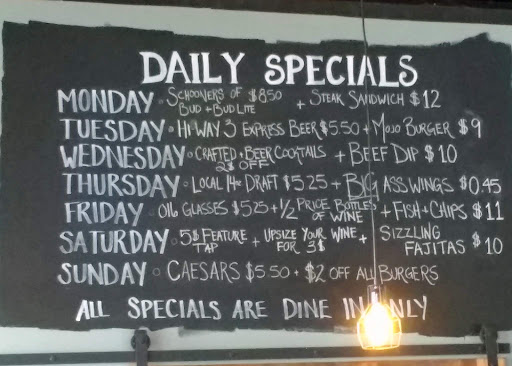 DAILY SPECIALS
MONDAY • SCHOONERS OF $8.50 BUD + BUD LITE + STEAK SANDWICH $12
TUESDAY • HI WAY 3 EXPRESS BEER $5.50 + MOJO BURGER $9
WEDNESDAY • CRAFTED + BEER COCKTAILS 2$ OFF + BEEF DIP $10
THURSDAY • LOCAL 14oz DRAFT $5.25 + BIG ASS WINGS $0.45
FRIDAY • GLASSES $5.25 + 1/2 PRICE BOTTLES OF WINE + FISH + CHIPS $11
SATURDAY • 5$ FEATURE TAP + UPSIZE YOUR WINE FOR 3$ + SIZZLING FAJITAS $10
SUNDAY • CAESARS $5.50 + $2 OFF ALL BURGERS
ALL SPECIALS ARE DINE IN ONLY